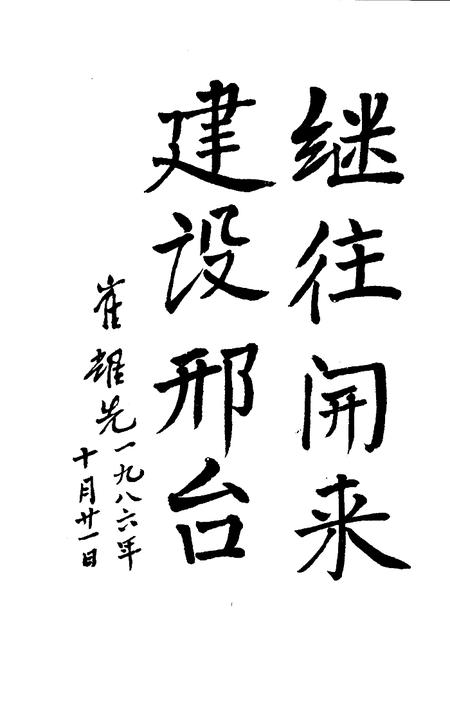 继往开来
建设邢台
崔耀先一九八六年
十月廿一日